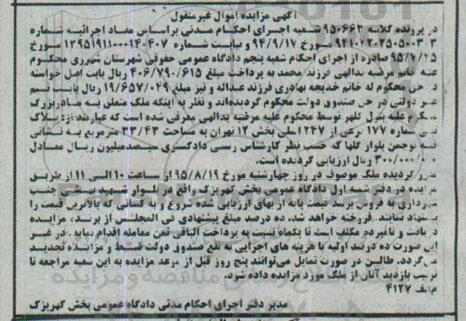 آگهی مزایده اموال غیرمنقول
در پرونده کلاسه ۹۵۰۶۶۲ شعبه اجرای احکام مدنی براساس مفاد اجرائیه شماره
مورخ ۹۴/۹/۱۷ و نیابت شماره ۱۴۰۴۰۷ مورخ
۹۵/۷/۱۵ صادره از اجرای احکام شعبه پنجم دادگاه عمومی حقوقی شهرستان شهرری محکوم
علیه خانم مرضیه بداللهی فرزند محمد به پرداخت مبلغ ۴۰۶/۷۹۰/۶۱۵ ریال بابت اصل خواسته
در حق محکوم له خانم خدیجه بهادری فرزند عبداله و نیز مبلغ ۱۹/۶۵۷/۰۴۹ ریال بابت نیم
عشر دولتی در حق صندوق دولت محکوم گردیده‌اند و نظر به اینکه ملک متعلق به مادربزرگ
محکوم علیه بتول توسط محکوم علیه مرضیه بداللهی معرفی شده است که عبارتند از پلاک
ثبتی شماره ۱۷۷ فرعی از ۱۲۳۷ اصلی بخش ۱۲ تهران به مساحت ۳۳/۴۳ مترمربع به نشانی
بلوار گلها که حسب نظر کارشناس رسمی دادگستری سیصدمیلیون ریال معادل
۳۰۰/۰۰۰/۰۰۰ ریال ارزیابی گردیده است.
مقرر گردیده ملک موصوف در روز چهارشنبه مورخ ۹۵/۸/۱۹ از ساعت ۱۰ الی ۱۱ از طریق
مزایده در دفتر شعبه اول دادگاه عمومی بخش کهریزک واقع در بلوار شهید جنب
شهرداری به فروش برسد قیمت پایه از بهای ارزیابی شده شروع و به کسانی که بالاترین قیمت را
پیشنهاد نمایند، فروخته خواهد شد. ده درصد مبلغ پیشنهادی فی المجلس از برنده مزایده
دریافت و نامبرده مکلف است تا یکماه نسبت به پرداخت الباقی ثمن معامله اقدام نماید، در غیر
این صورت ده درصد اولیه با هزینه های اجرایی به نفع صندوق دولت ضبط و مزایده تجدید
می‌گردد. طالبین در صورت تمایل می‌توانند پنج روز قبل از موعد مزایده به این شعبه مراجعه تا
ترتیب بازدید آنان از ملک مورد مزایده داده شود.
م الف ۴۱۲۷
مدیر دفتر اجرای احکام مدنی دادگاه عمومی بخش کهریزک